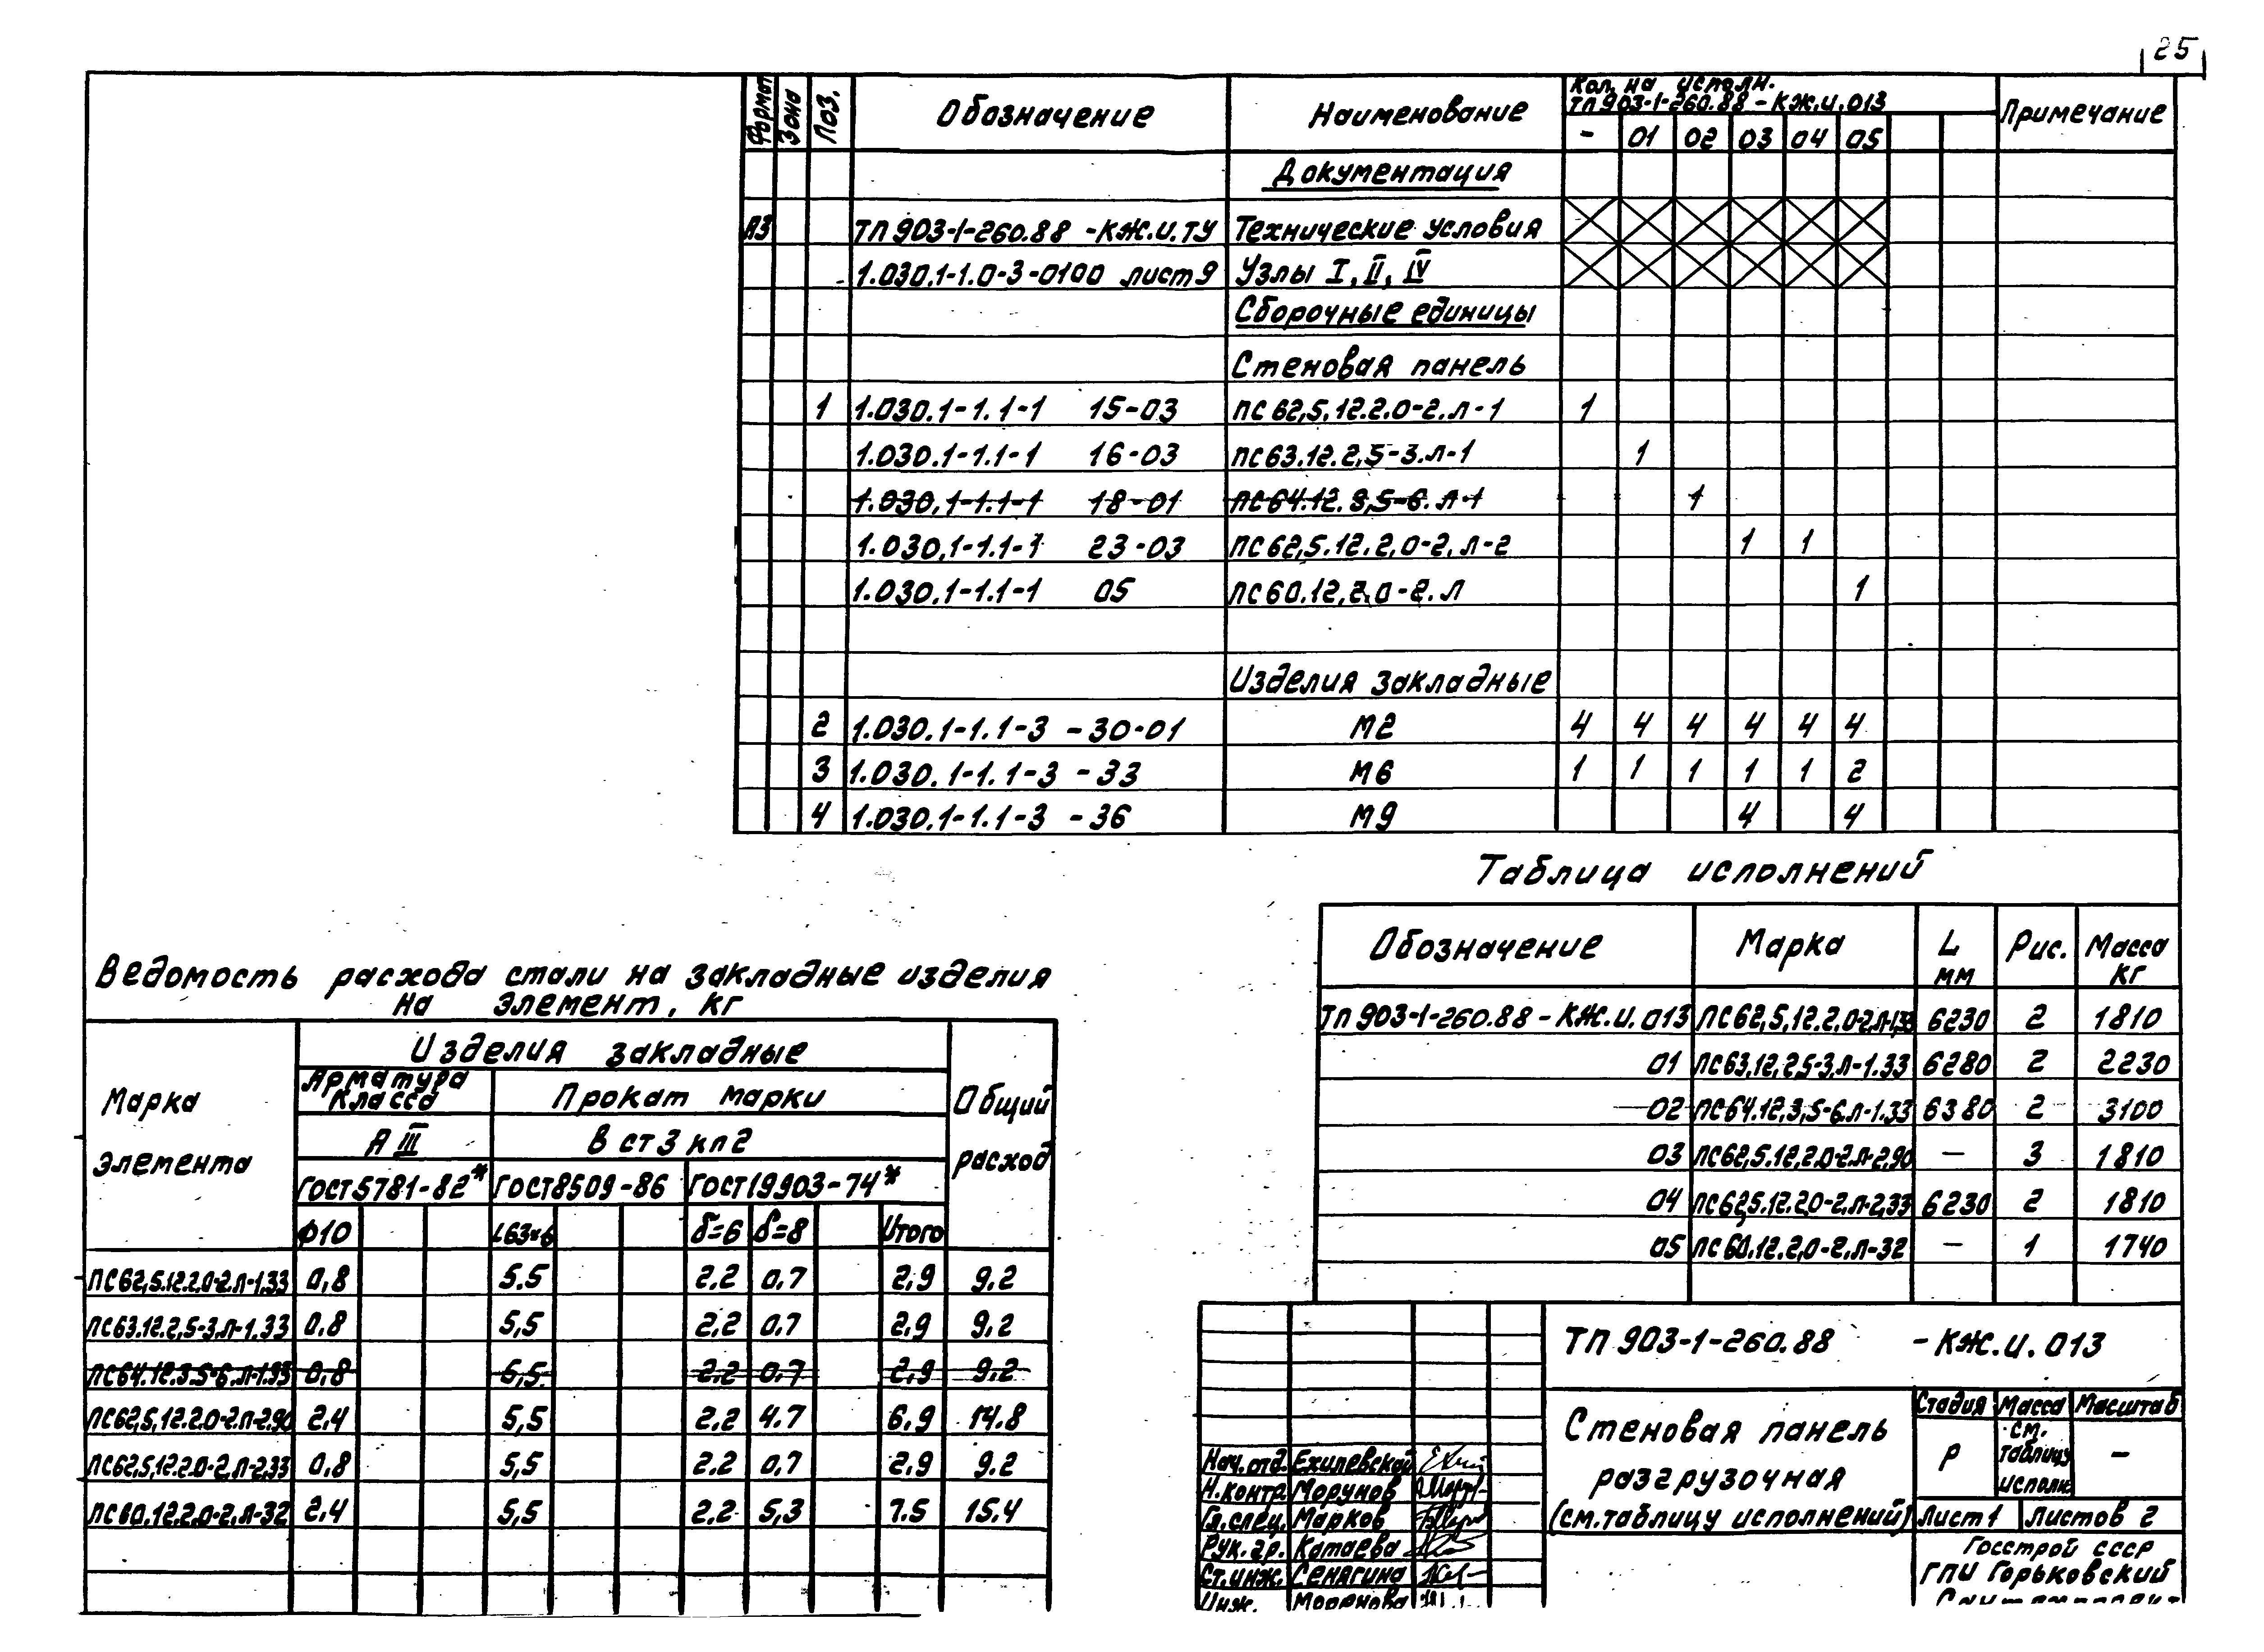 25
Формат Зона Поз. Обозначение Наименование Кол. на исполн. ТП 903-1-260.88 - КЖ.И.013 Примечание
- 01 02 03 04 05
Документация
А3 ТП 903-1-260.88 -КЖ.И.ТУ Технические условия
1.030.1-1.0-3-0100 лист 9 Узлы I, II, IV
Сборочные единицы
Стеновая панель
1 1.030.1-1.1-1 15-03 ПС 62,5.12.2.0-2.Л-1 1
1.030.1-1.1-1 16-03 ПС63.12.2,5-3.Л-1 1
1.030.1-1.1-1 18-01 ПС64.12.3,5-6.Л-1 1
1.030.1-1.1-1 23-03 ПС62,5.12.2,0-2.Л-2 1 1
1.030.1-1.1-1 05 ПС60.12.2,0-2.Л 1
Изделия закладные
2 1.030.1-1.1-3 -30-01 М2 4 4 4 4 4 4
3 1.030.1-1.1-3 -33 М6 1 1 1 1 1 2
4 1.030.1-1.1-3 -36 М9 4 4
Таблица исполнений
Обозначение Марка L мм Рис. Масса кг
ТП 903-1-260.88 - КЖ.И.013 ПС62,5.12.2,0-2.Л-1.33 6230 2 1810
01 ПС63.12.2,5-3.Л-1.33 6280 2 2230
02 ПС64.12.3,5-6.Л-1.33 6380 2 3100
03 ПС62,5.12.2.0-2.Л-2.90 — 3 1810
04 ПС62,5.12.2.0-2.Л-2.33 6230 2 1810
05 ПС60.12.2,0-2.Л-32 — 1 1740
Ведомость расхода стали на закладные изделия
на элемент, кг
Марка элемента Изделия закладные Общий расход
Арматура класса Прокат марки
А III В ст 3 кп 2
ГОСТ 5781-82* ГОСТ 8509-86 ГОСТ 19903-74*
ф10 L63×6 δ=6 δ=8 Итого
ПС62,5.12.2.0-2.Л-1.33 0,8 5.5 2.2 0,7 2,9 9.2
ПС63.12.2,5-3.Л-1.33 0,8 5,5 2.2 0,7 2,9 9.2
ПС64.12.3.5-6.Л-1.33 0,8 5,5 2.2 0.7 2,9 9.2
ПС62,5.12.2.0-2.Л-2.90 2.4 5,5 2.2 4.7 6,9 14.8
ПС62,5.12.2.0-2.Л-2.33 0,8 5,5 2.2 0,7 2,9 9.2
ПС60.12.2.0-2.Л-32 2.4 5,5 2.2 5,3 7.5 15.4
ТП 903-1-260.88 -КЖ.И.013
Стеновая панель
разгрузочная
(см. таблицу исполнений)
Стадия Масса Масштаб
Р см. таблицу исполн. —
Лист 1 Листов 2
Госстрой СССР
ГПИ Горьковский
Нач.отд. Ехилевской
Н.контр. Морунов
Гл.спец. Марков
Рук.гр. Катаева
Ст.инж. Сенягина
Инж.